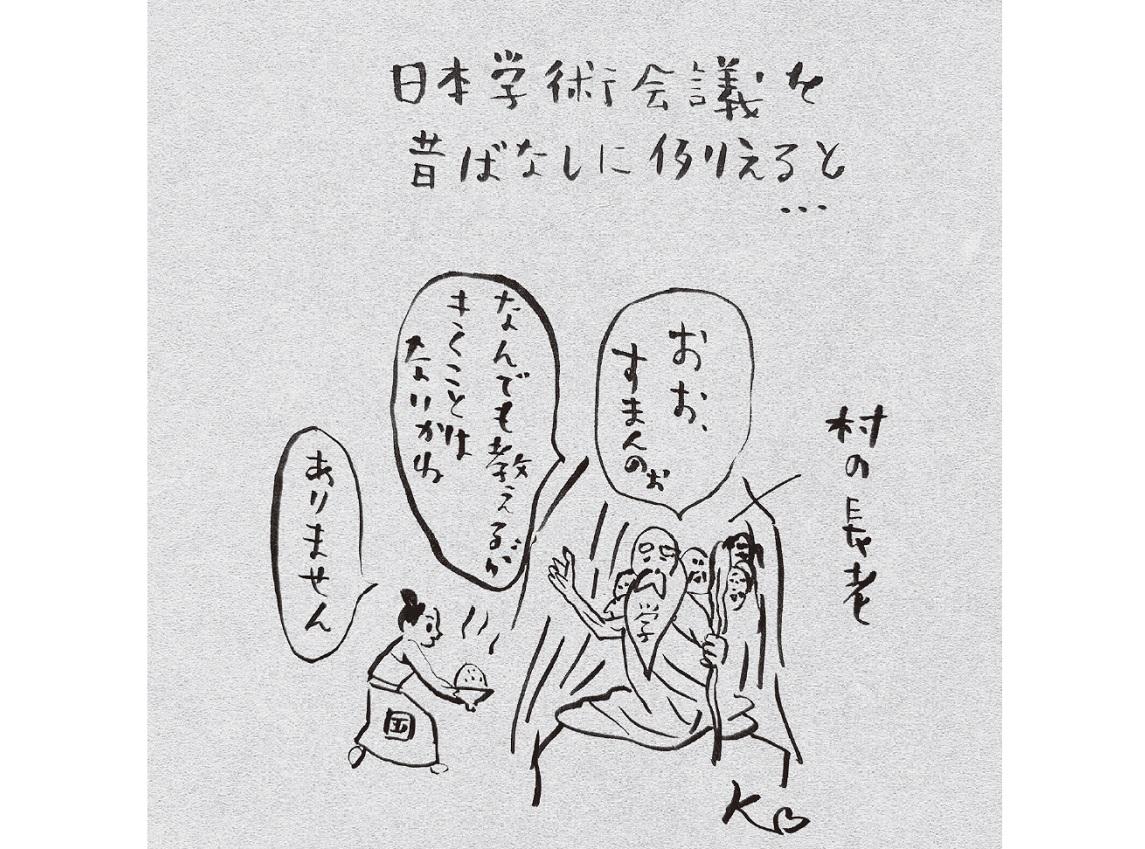 日本学術会議を
昔ばなしに例えると
...
村の長老
おお、
すまんのぉ
なんでも教えるが
きくことは
ないかね
ありません
学
国
K